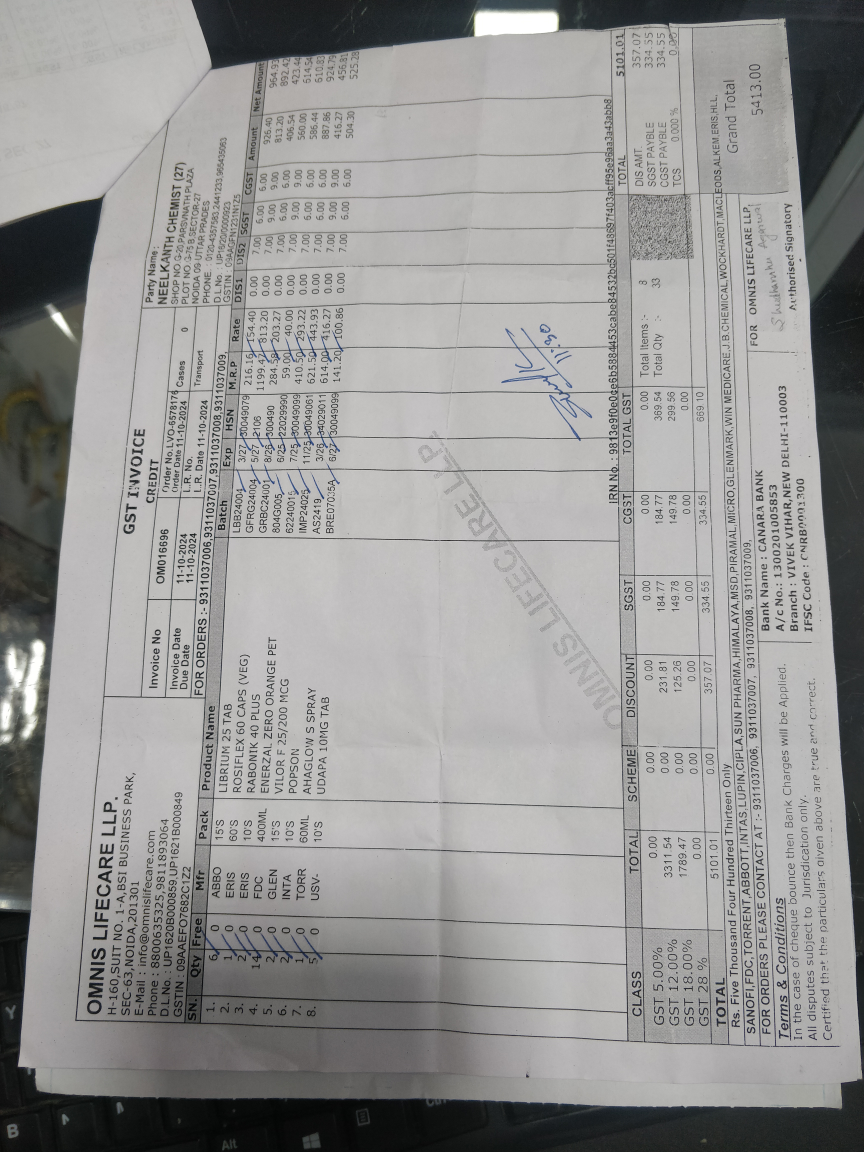 GST INVOICE
OMNIS LIFECARE LLP.
H-160,SUIT NO. 1-A,BSI BUSINESS PARK,
SEC-63,NOIDA,201301
E-Mail : info@omnislifecare.com
Phone : 8800635325,9811893064
D.L.No. : UP1620B000859,UP1621B000849
GSTIN : 09AAEFO7682C1Z2
CREDIT
Invoice No OM016696
Invoice Date 11-10-2024
Due Date 11-10-2024
Order No. LVO-6578176
Order Date 11-10-2024 Cases 0
L.R. No.
L.R. Date 11-10-2024 Transport
FOR ORDERS :- 9311037006,9311037007,9311037008,9311037009,
Party Name :
NEELKANTH CHEMIST (27)
SHOP NO G-26,PARSVNATH PLAZA
PLOT NO 3-75 B,SECTOR-27
NOIDA 09-UTTAR PRADES
SN. Qty Free Mfr Pack Product Name Batch Exp HSN M.R.P Rate DIS1 DIS2 SGST CGST Amount Net Amount
1. 6 0 ABBO 15'S LIBRIUM 25 TAB LBB24004 3/27 30049079 216.16 154.40 0.00 7.00 6.00 6.00 926.40 964.93
2. 1 0 ERIS 60'S ROSIFLEX 60 CAPS (VEG) GFRG24104 5/27 2106 1199.47 813.20 0.00 7.00 9.00 9.00 813.20 892.42
3. 2 0 ERIS 10'S RABONIK 40 PLUS 8/26 300490 284.58 203.27 0.00 7.00 6.00 6.00 406.54 423.44
4. 14 0 FDC 400ML ENERZAL ZERO ORANGE PET 804G005 6/25 22029990 59.00 40.00 0.00 7.00 9.00 9.00 560.00 614.54
5. 2 0 GLEN 15'S VILOR F 25/200 MCG 62240015 7/25 30049099 410.50 293.22 0.00 7.00 6.00 6.00 586.44 610.83
6. 2 0 INTA 10'S POPSON IMP24025 11/25 30049061 621.50 443.93 0.00 7.00 6.00 6.00 887.86 924.79
7. 1 0 TORR 60ML AHAGLOW S SPRAY AS2419 3/26 34029011 614.00 416.27 0.00 7.00 9.00 9.00 416.27 456.81
8. 5 0 USV- 10'S UDAPA 10MG TAB 6/27 30049099 141.20 100.86 0.00 7.00 6.00 6.00 504.30 525.28
11:30
OMNIS LIFECARE LLP
CLASS TOTAL SCHEME DISCOUNT SGST CGST TOTAL GST
GST 5.00% 0.00 0.00 0.00 0.00 0.00 0.00
GST 12.00% 3311.54 0.00 231.81 184.77 184.77 369.54
GST 18.00% 1789.47 0.00 125.26 149.78 149.78 299.56
GST 28 % 0.00 0.00 0.00 0.00 0.00 0.00
TOTAL 5101.01 0.00 357.07 334.55 334.55 669.10
Total Items :- 8
Total Qty :- 33
TOTAL 5101.01
DIS AMT. 357.07
SGST PAYBLE 334.55
CGST PAYBLE 334.55
TCS 0.000 % 0.00
Grand Total 5413.00
Rs. Five Thousand Four Hundred Thirteen Only
SANOFI,FDC,TORRENT,ABBOTT,INTAS,LUPIN,CIPLA,SUN PHARMA,HIMALAYA,MSD,PIRAMAL,MICRO,GLENMARK,WIN MEDICARE,J.B.CHEMICAL,WOCKHARDT,MACLEODS,ALKEM,ERIS,HLL,
FOR ORDERS PLEASE CONTACT AT :- 9311037006, 9311037007, 9311037008, 9311037009,
Terms & Conditions
In the case of cheque bounce then Bank Charges will be Applied.
All disputes subject to Jurisdiction only.
Certified that the particulars given above are true and correct.
Bank Name : CANARA BANK
A/c No.: 1300201005853
Branch : VIVEK VIHAR,NEW DELHI-110003
IFSC Code : CNRB0001300
FOR OMNIS LIFECARE LLP
Authorised Signatory